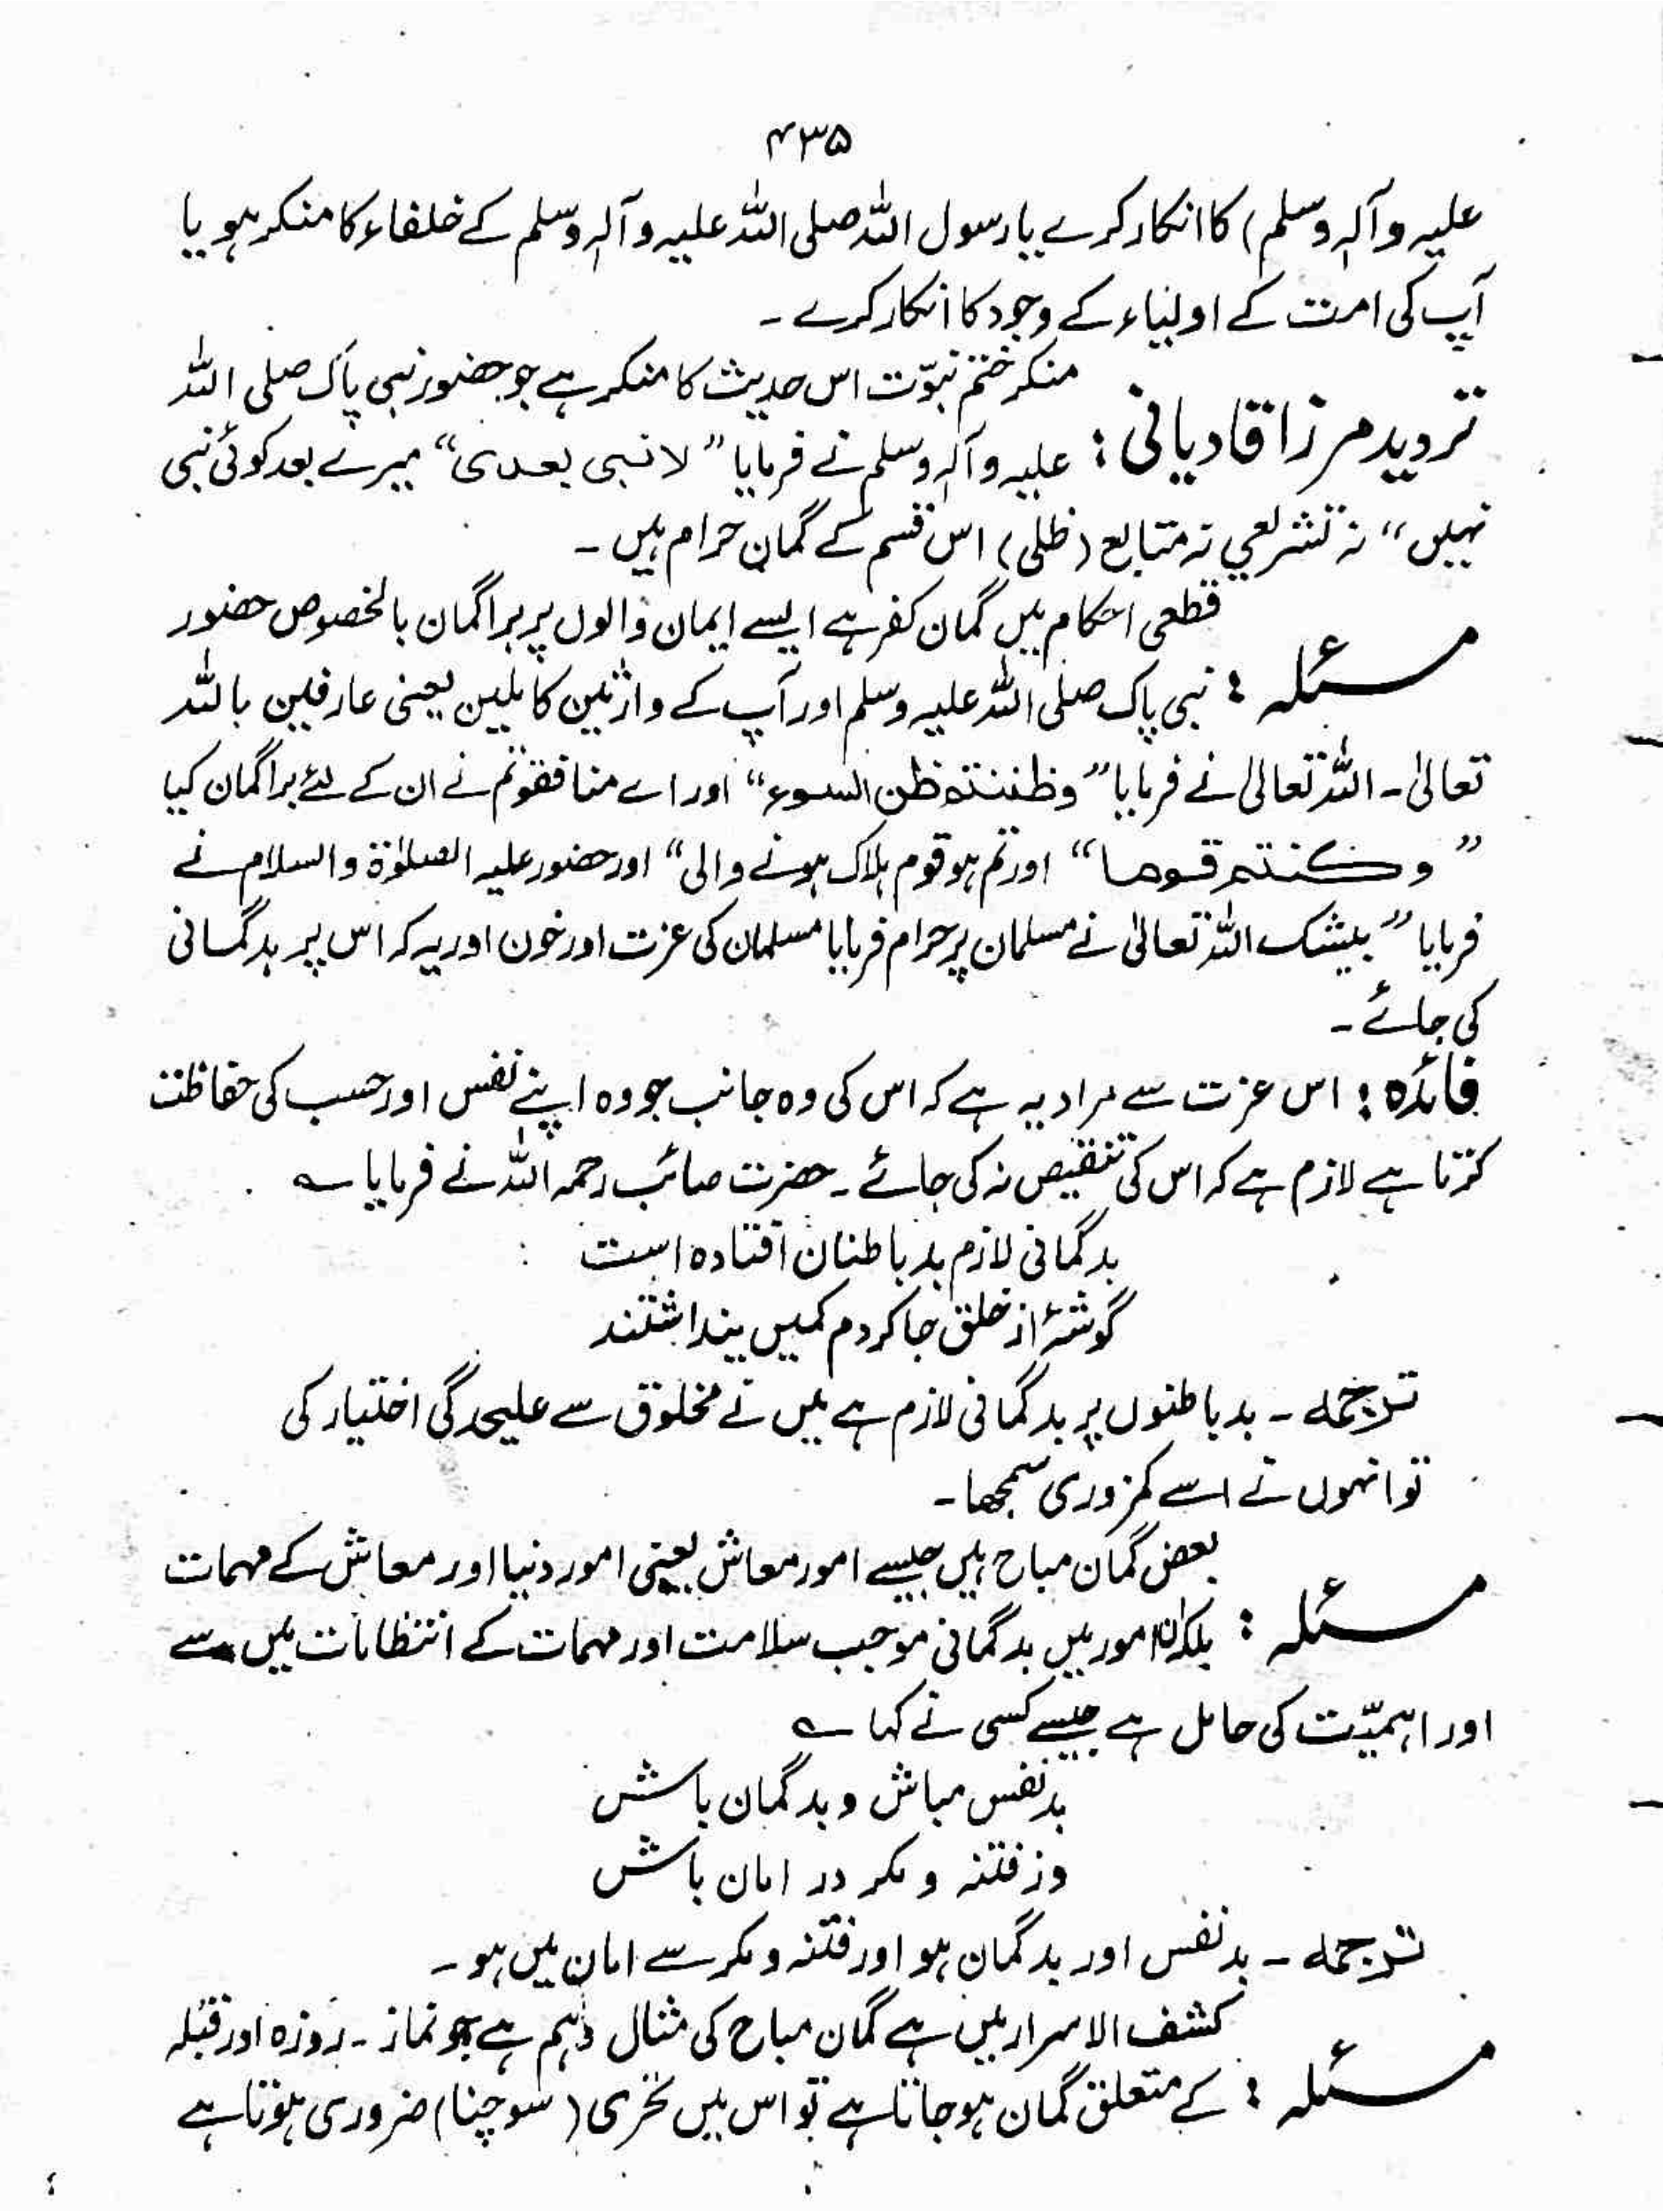 ۴۳۵
علیہ وآلہ وسلم) کا انکار کرے یا رسول اللہ صلی اللہ علیہ وآلہ وسلم کے خلفاء کا منکر ہو یا
آپ کی امت کے اولیاء کے وجود کا انکار کرے ۔
تردید مرزا قادیانی : منکر ختم نبوّت اس حدیث کا منکر ہے جو حضور نبی پاک صلی اللہ
علیہ وآلہ وسلم نے فرمایا ”لا نبی بعدی“ میرے بعد کوئی نبی
نہیں“ نہ تشریعی نہ متابع (ظلی) اس قسم کے گمان حرام ہیں ۔
مسئلہ : قطعی احکام میں گمان کفر ہے ایسے ایمان والوں پر برا گمان بالخصوص حضور
نبی پاک صلی اللہ علیہ وسلم اور آپ کے وارثین کاملین یعنی عارفین باللہ
تعالیٰ ۔ اللہ تعالیٰ نے فرمایا ”وظننتم ظن السوء“ اور اے منافقو تم نے ان کے لئے برا گمان کیا
”وکنتم قوما“ اور تم ہو قوم ہلاک ہونے والی“ اور حضور علیہ الصلوٰۃ والسلام نے
فرمایا ”بیشک اللہ تعالیٰ نے مسلمان پر حرام فرمایا مسلمان کی عزت اور خون اور یہ کہ اس پر بدگمانی
کی جائے ۔
فائدہ : اس عزت سے مراد یہ ہے کہ اس کی وہ جانب جو وہ اپنے نفس اور حسب کی حفاظت
کرتا ہے لازم ہے کہ اس کی تنقیص نہ کی جائے ۔ حضرت صائب رحمہ اللہ نے فرمایا ؎
بدگمانی لازم بد باطنان افتادہ است
گوشۂ از خلق جا کردم کمیں پنداشتند
ترجمہ ۔ بد باطنوں پر بدگمانی لازم ہے میں نے مخلوق سے علیحدگی اختیار کی
تو انہوں نے اسے کمزوری سمجھا ۔
مسئلہ : بعض گمان مباح ہیں جیسے امور معاش یعنی امور دنیا اور معاش کے مہمات
بلکہ ان امور میں بدگمانی موجب سلامت اور مہمات کے انتظامات میں سے
اور اہمیّت کی حامل ہے جیسے کسی نے کہا ؎
بد نفس مباش و بد گمان باش
وز فتنہ و مکر در امان باش
ترجمہ ۔ بد نفس اور بد گمان ہو اور فتنہ و مکر سے امان میں ہو ۔
مسئلہ : کشف الاسرار میں ہے گمان مباح کی مثال وہم ہے جو نماز ۔ روزہ اور قبلہ
کے متعلق گمان ہو جاتا ہے تو اس میں تحری (سوچنا) ضروری ہوتا ہے